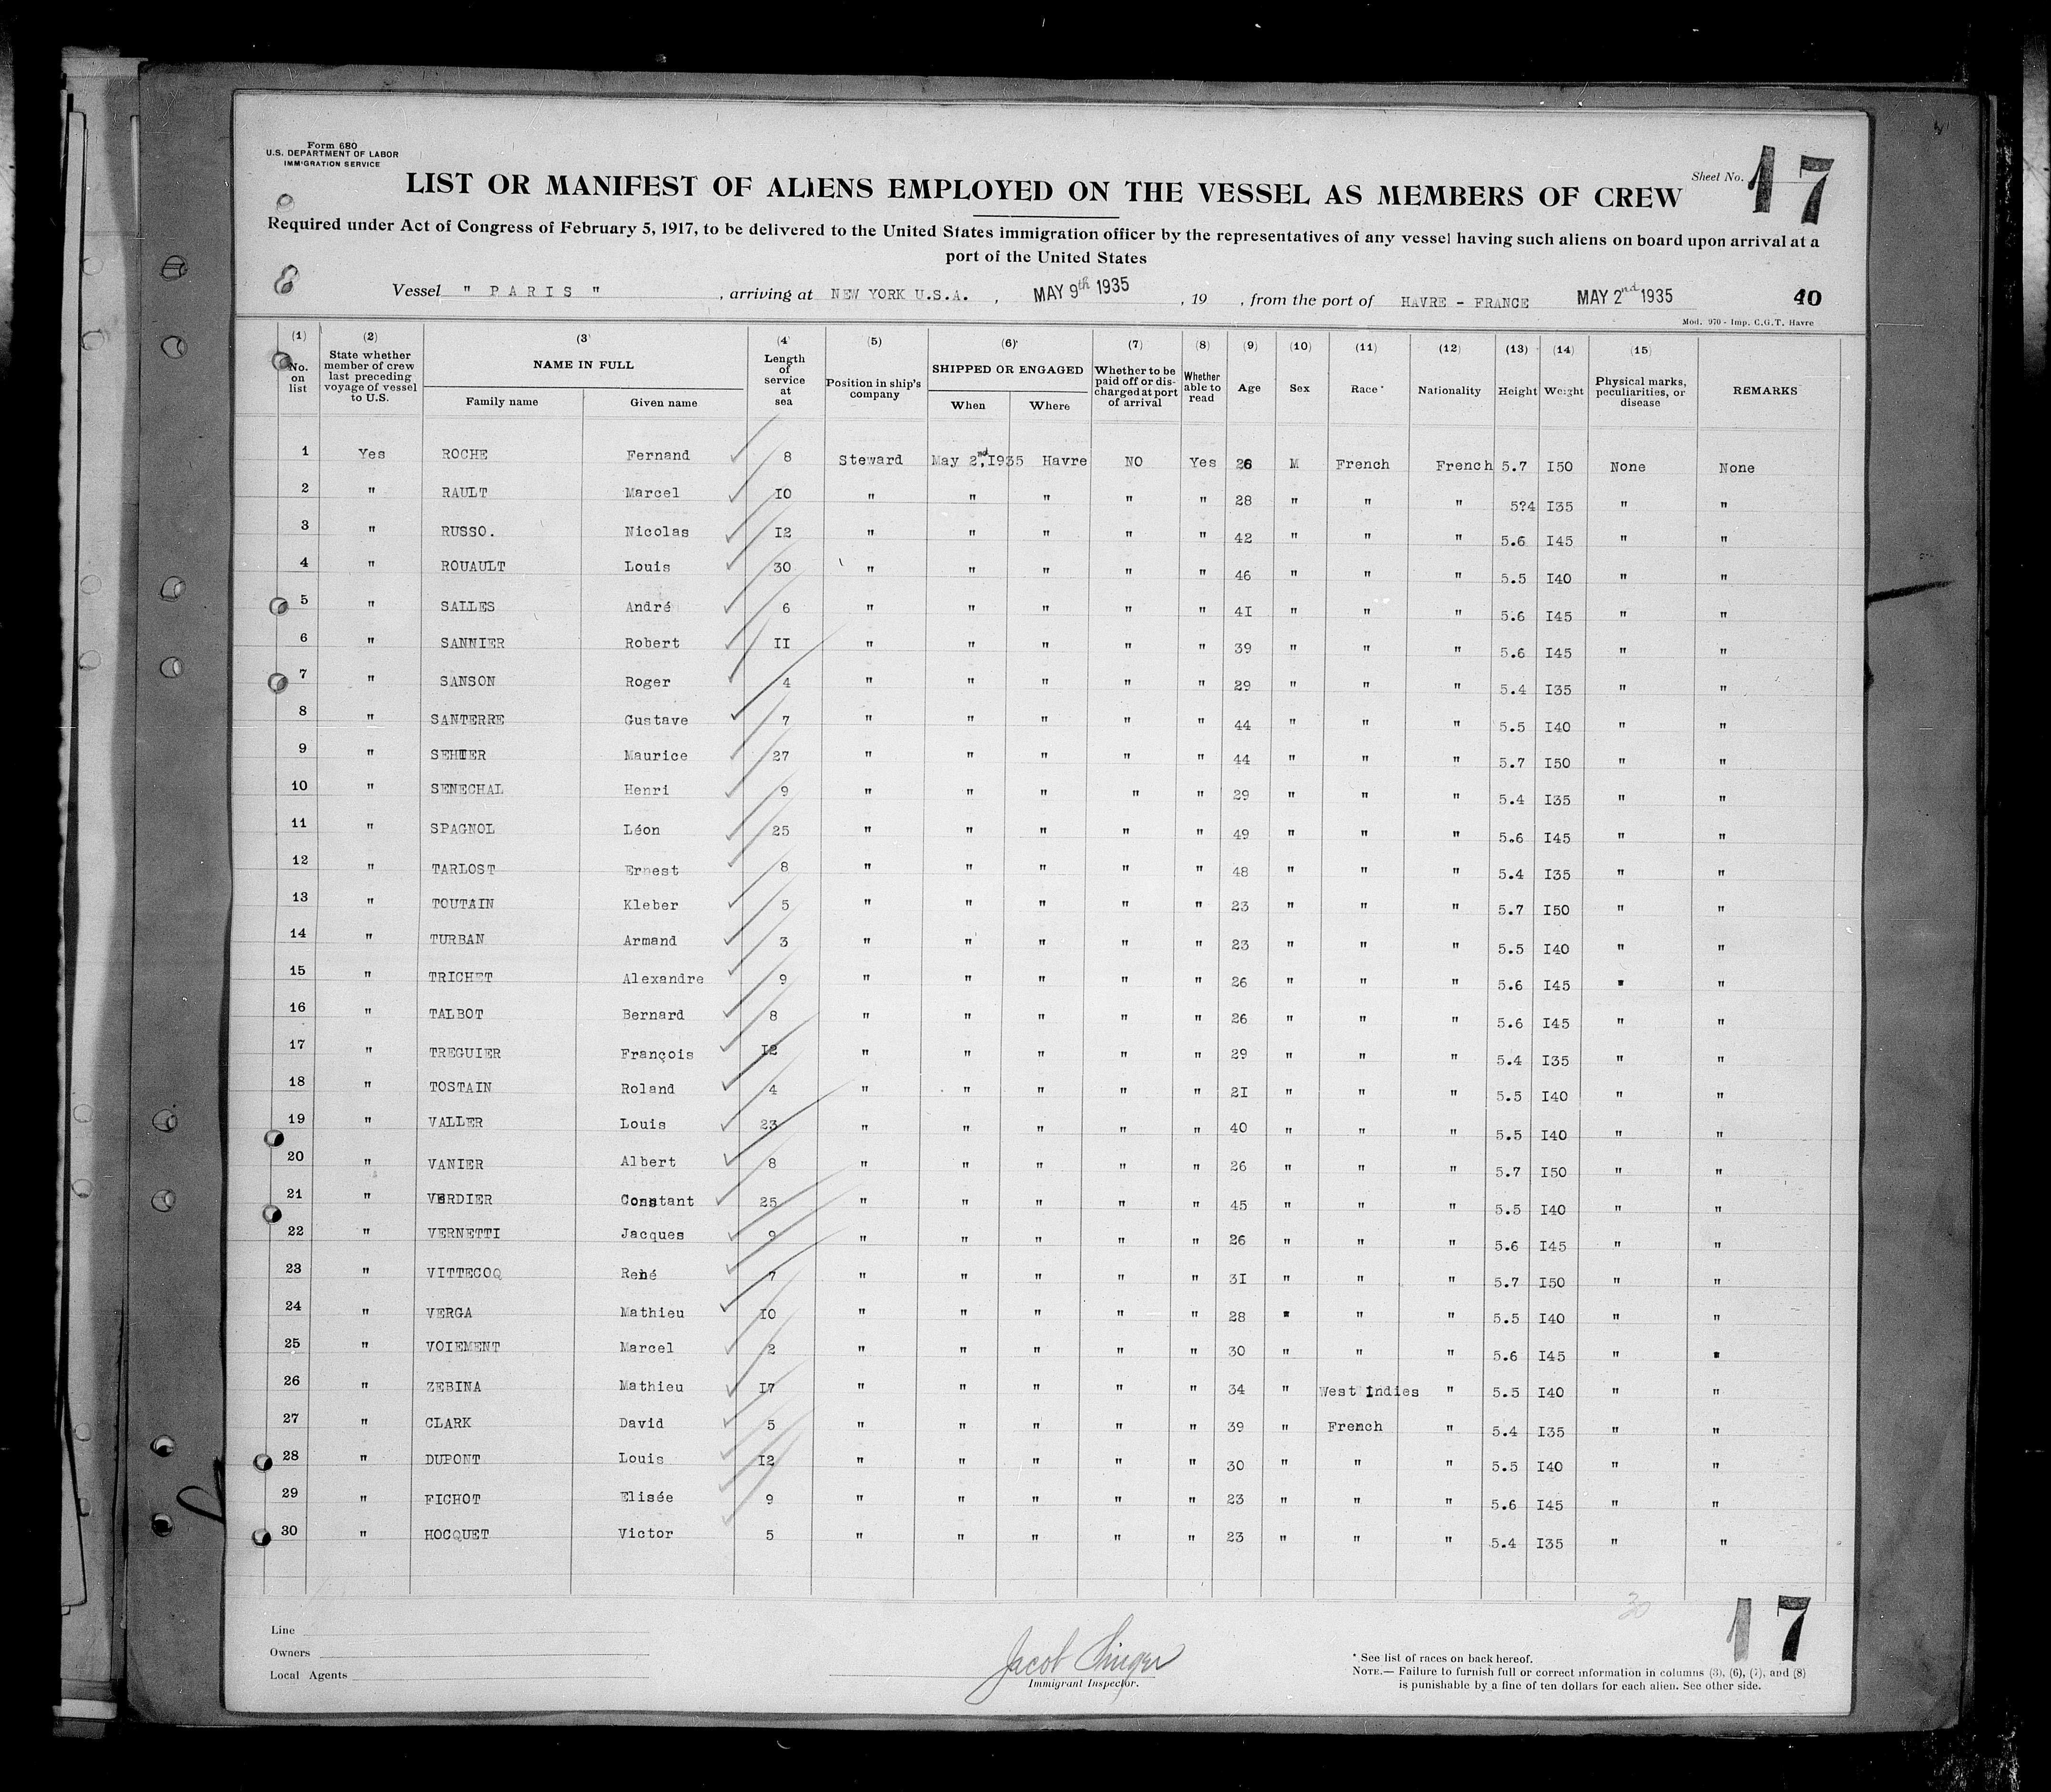 Form 680
U.S. DEPARTMENT OF LABOR
IMMIGRATION SERVICE
Sheet No. 17
LIST OR MANIFEST OF ALIENS EMPLOYED ON THE VESSEL AS MEMBERS OF CREW
Required under Act of Congress of February 5, 1917, to be delivered to the United States immigration officer by the representatives of any vessel having such aliens on board upon arrival at a
port of the United States
Vessel " PARIS " , arriving at NEW YORK U.S.A. , MAY 9th 1935 , 19 , from the port of HAVRE - FRANCE MAY 2nd 1935 40
Mod. 970 - Imp. C.G.T. Havre
(1) No. on list (2) State whether member of crew last preceding voyage of vessel to U.S. (3) NAME IN FULL Family name Given name (4) Length of service at sea (5) Position in ship's company (6) SHIPPED OR ENGAGED When Where (7) Whether to be paid off or discharged at port of arrival (8) Whether able to read (9) Age (10) Sex (11) Race * (12) Nationality (13) Height (14) Weight (15) Physical marks, peculiarities, or disease REMARKS
1 Yes ROCHE Fernand 8 Steward May 2nd,I935 Havre NO Yes 26 M French French 5.7 I50 None None
2 " RAULT Marcel IO " " " " " 28 " " " 5?4 I35 " "
3 " RUSSO. Nicolas I2 " " " " " 42 " " " 5.6 I45 " "
4 " ROUAULT Louis 30 " " " " " 46 " " " 5.5 I40 " "
5 " SALLES André 6 " " " " " 4I " " " 5.6 I45 " "
6 " SANNIER Robert II " " " " " 39 " " " 5.6 I45 " "
7 " SANSON Roger 4 " " " " " 29 " " " 5.4 I35 " "
8 " SANTERRE Gustave 7 " " " " " 44 " " " 5.5 I40 " "
9 " Maurice 27 " " " " " 44 " " " 5.7 I50 " "
10 " SENECHAL Henri 9 " " " " " 29 " " " 5.4 I35 " "
11 " SPAGNOL Léon 25 " " " " " 49 " " " 5.6 I45 " "
12 " TARLOST Ernest 8 " " " " " 48 " " " 5.4 I35 " "
13 " TOUTAIN Kleber 5 " " " " " 23 " " " 5.7 I50 " "
14 " TURBAN Armand 3 " " " " " 23 " " " 5.5 I40 " "
15 " TRICHET Alexandre 9 " " " " " 26 " " " 5.6 I45 " "
16 " TALBOT Bernard 8 " " " " " 26 " " " 5.6 I45 " "
17 " TREGUIER François I2 " " " " " 29 " " " 5.4 I35 " "
18 " TOSTAIN Roland 4 " " " " " 2I " " " 5.5 I40 " "
19 " VALLER Louis 23 " " " " " 40 " " " 5.5 I40 " "
20 " VANIER Albert 8 " " " " " 26 " " " 5.7 I50 " "
21 " VERDIER Constant 25 " " " " " 45 " " " 5.5 I40 " "
22 " VERNETTI Jacques 9 " " " " " 26 " " " 5.6 I45 " "
23 " VITTECOQ René 7 " " " " " 3I " " " 5.7 I50 " "
24 " VERGA Mathieu IO " " " " " 28 " " " 5.5 I40 " "
25 " VOIEMENT Marcel 2 " " " " " 30 " " " 5.6 I45 " "
26 " ZEBINA Mathieu I7 " " " " " 34 " West Indies " 5.5 I40 " "
27 " CLARK David 5 " " " " " 39 " French " 5.4 I35 " "
28 " DUPONT Louis I2 " " " " " 30 " " " 5.5 I40 " "
29 " FICHOT Elisée 9 " " " " " 23 " " " 5.6 I45 " "
30 " HOCQUET Victor 5 " " " " " 23 " " " 5.4 I35 " "
30
17
Line
Owners
Local Agents
Jacob Singer
Immigrant Inspector.
* See list of races on back hereof.
NOTE.— Failure to furnish full or correct information in columns (3), (6), (7), and (8)
is punishable by a fine of ten dollars for each alien. See other side.